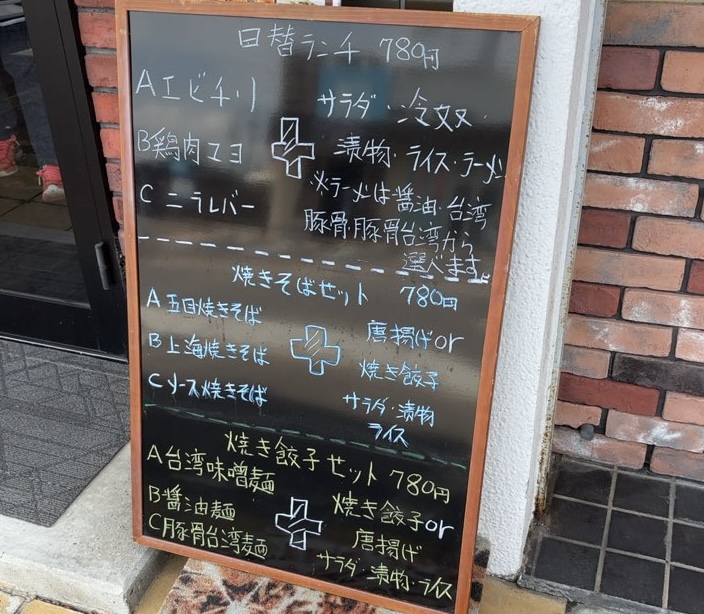 日替ランチ 780円
Aエビチリ
B鶏肉マヨ
C ニラレバー
サラダ・冷奴・
漬物・ライス・ラーメン
※ラーメンは醤油・台湾
豚骨・豚骨台湾から
選べます。
焼きそばセット 780円
A五目焼きそば
B上海焼きそば
Cソース焼きそば
唐揚げor
焼き餃子
サラダ・漬物
ライス
焼き餃子セット 780円
A台湾味噌麺
B醤油麺
C豚骨台湾麺
焼き餃子or
唐揚げ
サラダ・漬物・ライス